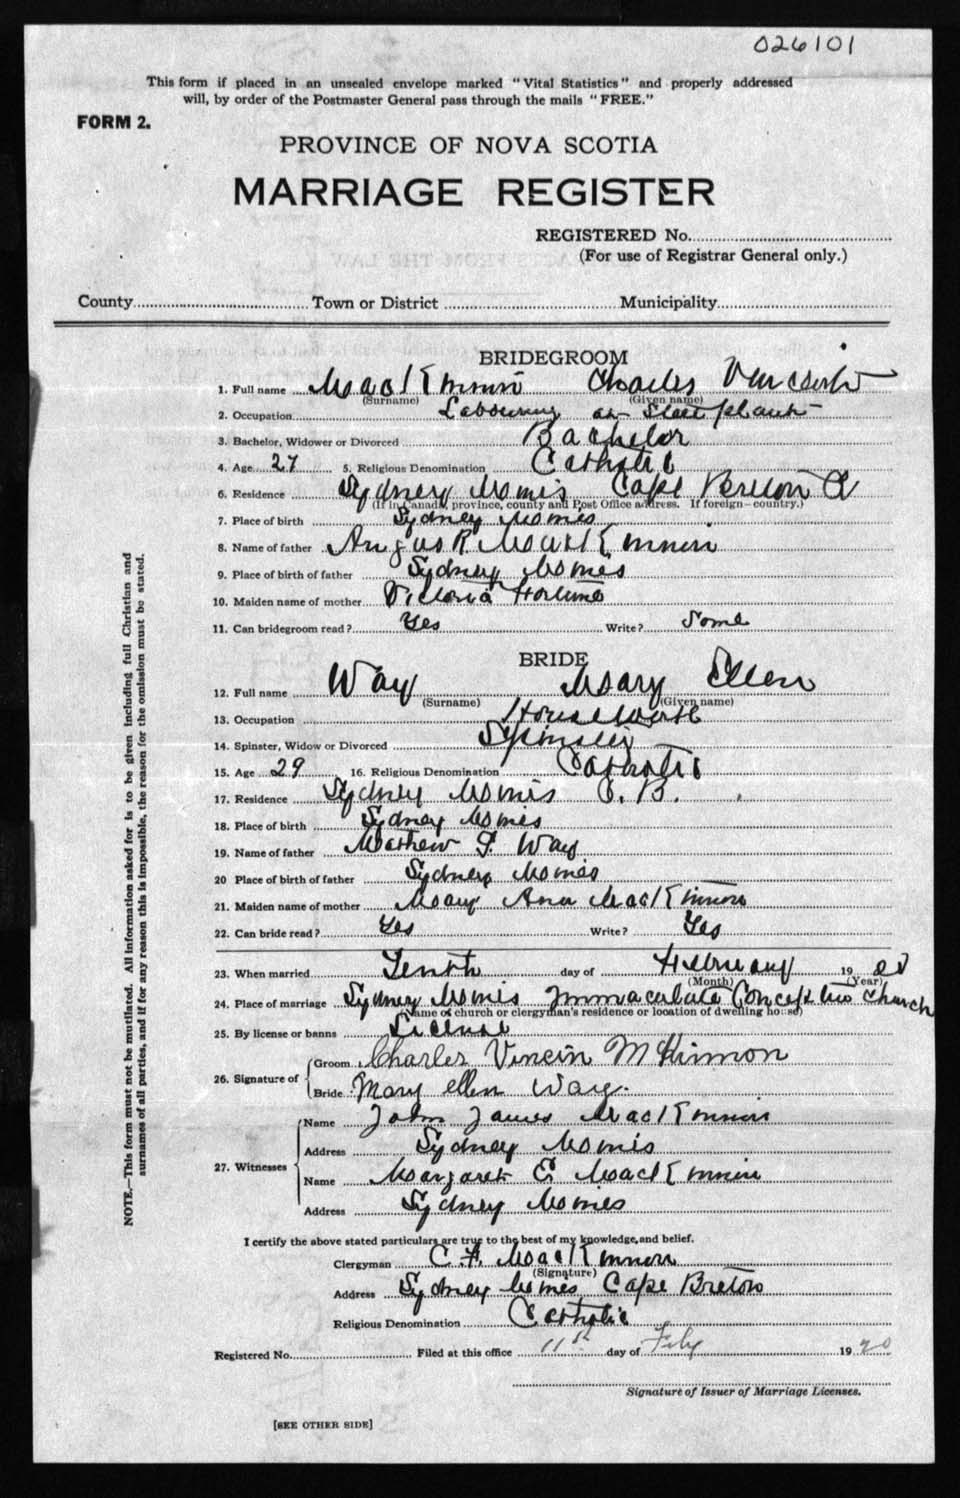 026101
This form if placed in an unsealed envelope marked "Vital Statistics" and properly addressed
will, by order of the Postmaster General pass through the mails "FREE."
FORM 2.
PROVINCE OF NOVA SCOTIA
MARRIAGE REGISTER
REGISTERED No.
(For use of Registrar General only.)
County Town or District Municipality
BRIDEGROOM
1. Full name MacKinnon Charles Vincent
(Surname) (Given name)
2. Occupation Labouring at Steel plant
3. Bachelor, Widower or Divorced Bachelor
4. Age 27 5. Religious Denomination Catholic
6. Residence Sydney Mines Cape Breton
(If in Canada, province, county and Post Office address. If foreign—country.)
7. Place of birth Sydney Mines
8. Name of father Angus R. MacKinnon
9. Place of birth of father Sydney Mines
10. Maiden name of mother Victoria
11. Can bridegroom read? Yes Write? Some
BRIDE
12. Full name Way Mary Ellen
(Surname) (Given name)
13. Occupation Housework
14. Spinster, Widow or Divorced Spinster
15. Age 29 16. Religious Denomination Catholic
17. Residence Sydney Mines C. B.
18. Place of birth Sydney Mines
19. Name of father Mathew F. Way
20 Place of birth of father Sydney Mines
21. Maiden name of mother Mary Ann MacKinnon
22. Can bride read? Yes Write? Yes
23. When married Tenth day of February 1920
(Month) (Year)
24. Place of marriage Sydney Mines Immaculate Conception Church
(Name of church or clergyman's residence or location of dwelling house)
25. By license or banns License
26. Signature of
Groom Charles Vincin McKinnon
Bride Mary ellen Way.
27. Witnesses
Name John James MacKinnon
Address Sydney Mines
Name Margaret E MacKinnon
Address Sydney Mines
I certify the above stated particulars are true to the best of my knowledge, and belief.
Clergyman C. F. MacKinnon
(Signature)
Address Sydney Mines Cape Breton
Religious Denomination Catholic
Registered No. Filed at this office 11th day of Feby 1920
Signature of Issuer of Marriage Licenses.
[SEE OTHER SIDE]
NOTE.—This form must not be mutilated. All information asked for is to be given including full Christian and
surnames of all parties, and if for any reason this is impossible, the reason for the omission must be stated.